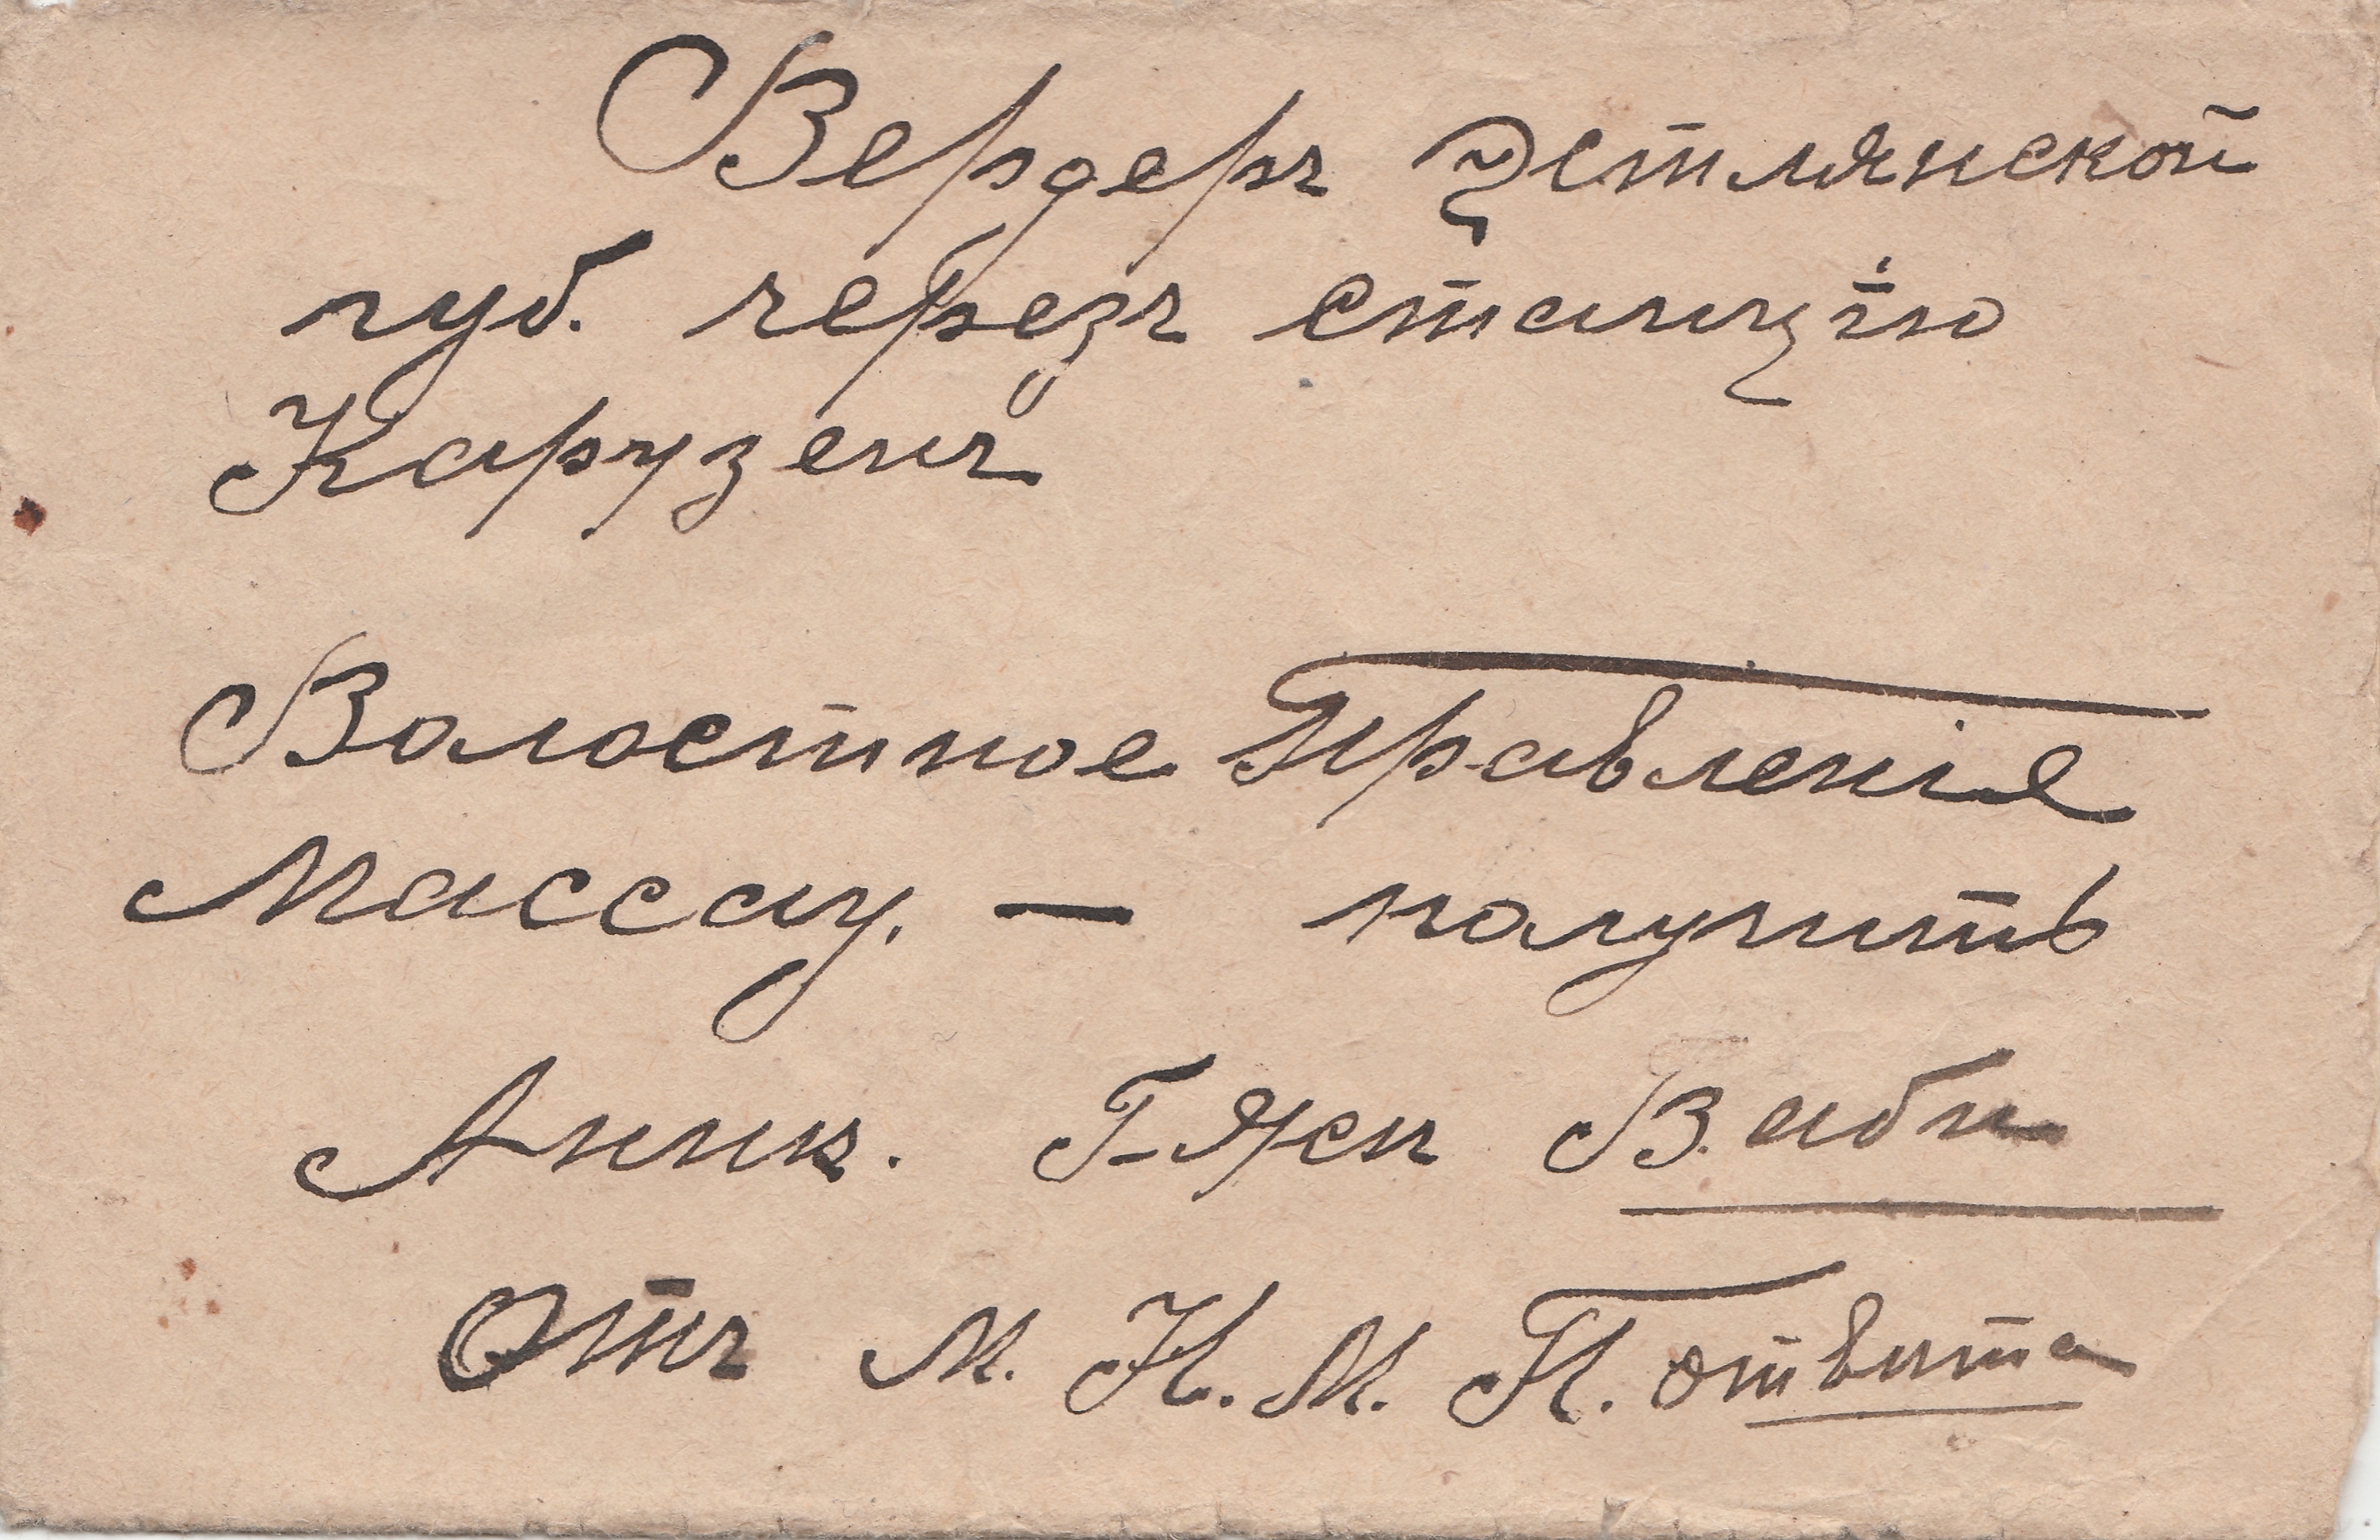 Вердеръ Эстлянской
губ. черезъ станцію
Карузенъ
Волостное Правленіе
Массау. — получить
Аннъ. Г-Яен Ваби
Отъ М. К. М. П. отвита